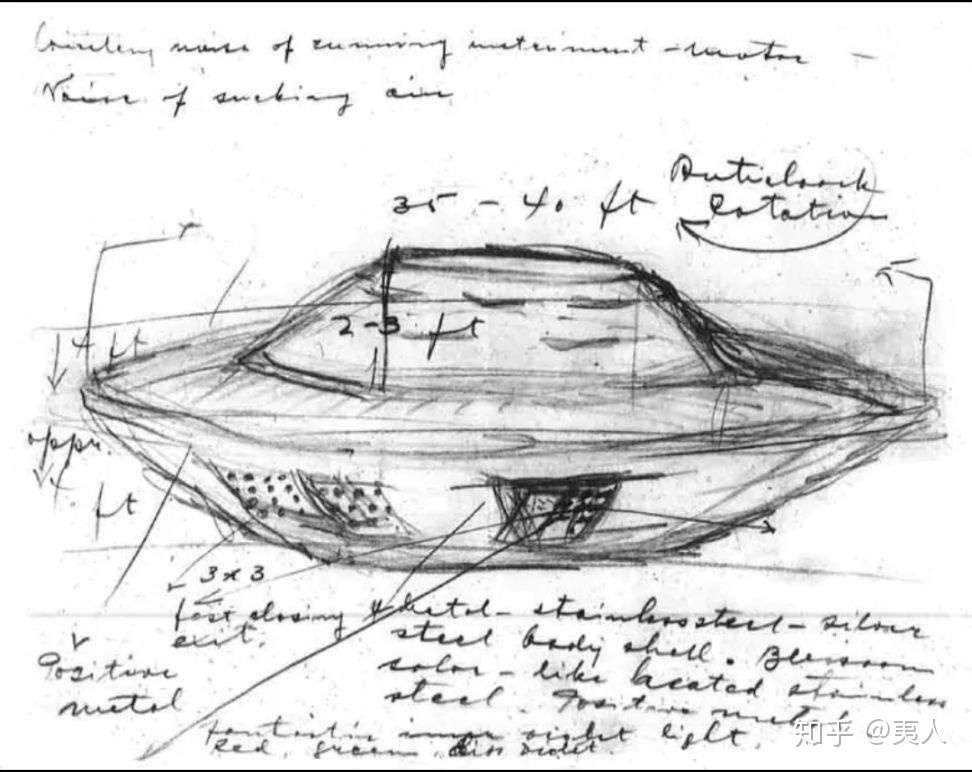 noise of running instrument - motor -
Noise of sucking air
Anticlock
Rotation
35 - 40 ft
2-3 ft
4 ft
appr.
4. ft
3 x 3
fast closing
exit.
Metal - stainless steel - silver
steel body shell.
color - like heated stainless
steel. Positive
Positive
metal
fantastic inner light,
red, green,
知乎 @夷人